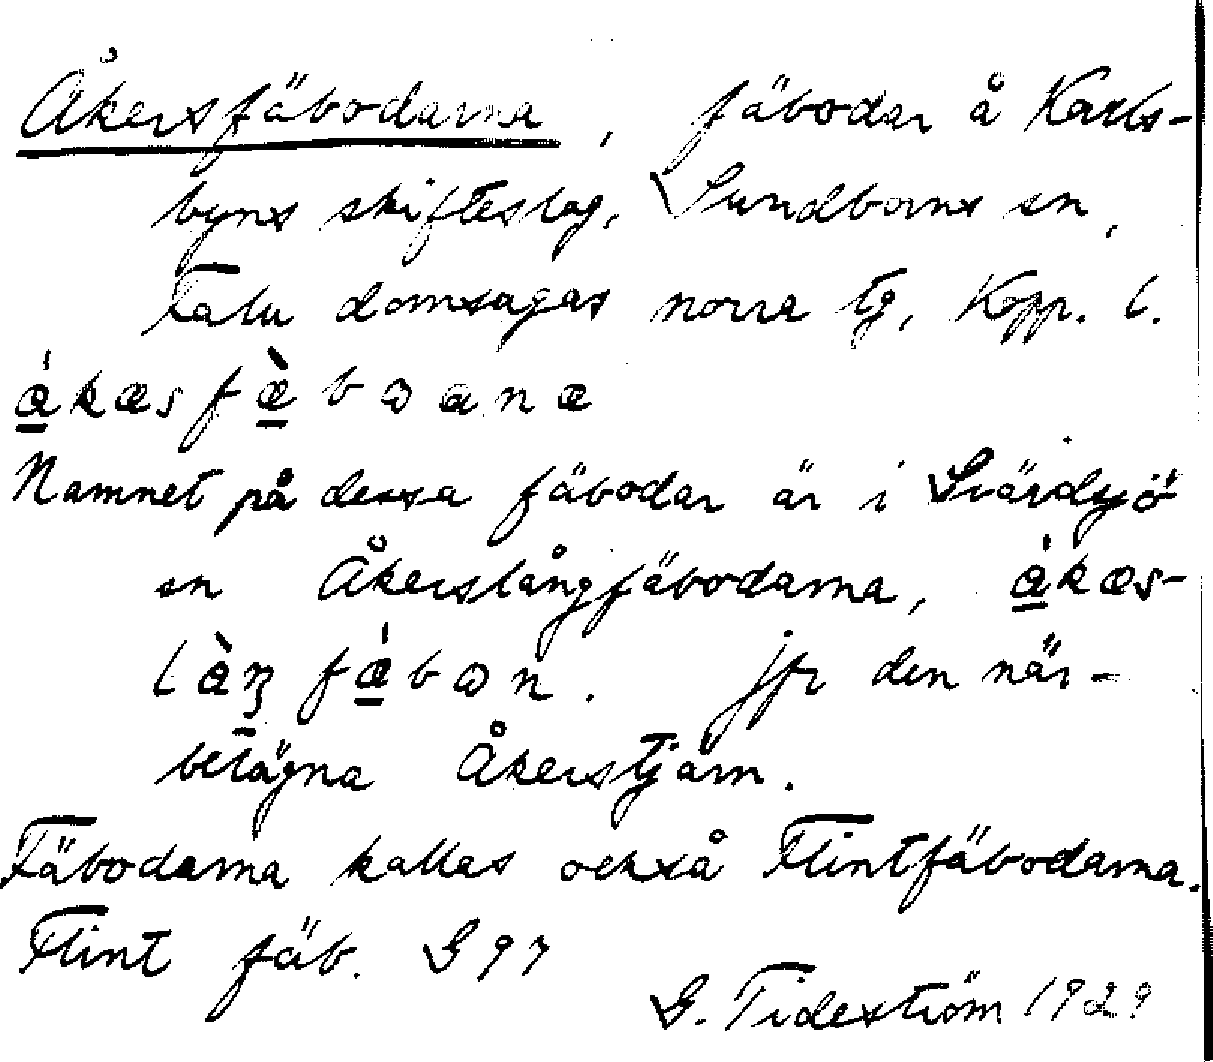 Åkersfäbodarna, fäbodar å Karls-
byns skifteslag, Sundborns sn,
Falu domsagas norra tg, Kopp. l.
Namnet på dessa fäbodar är i Svärdsjö
sn Åkerslångfäbodarna,
jfr den när-
belägna Åkerstjärn.
Fäbodarna kallas också Flintfäbodarna.
Flint fäb. G 97
G. Tideström 1929